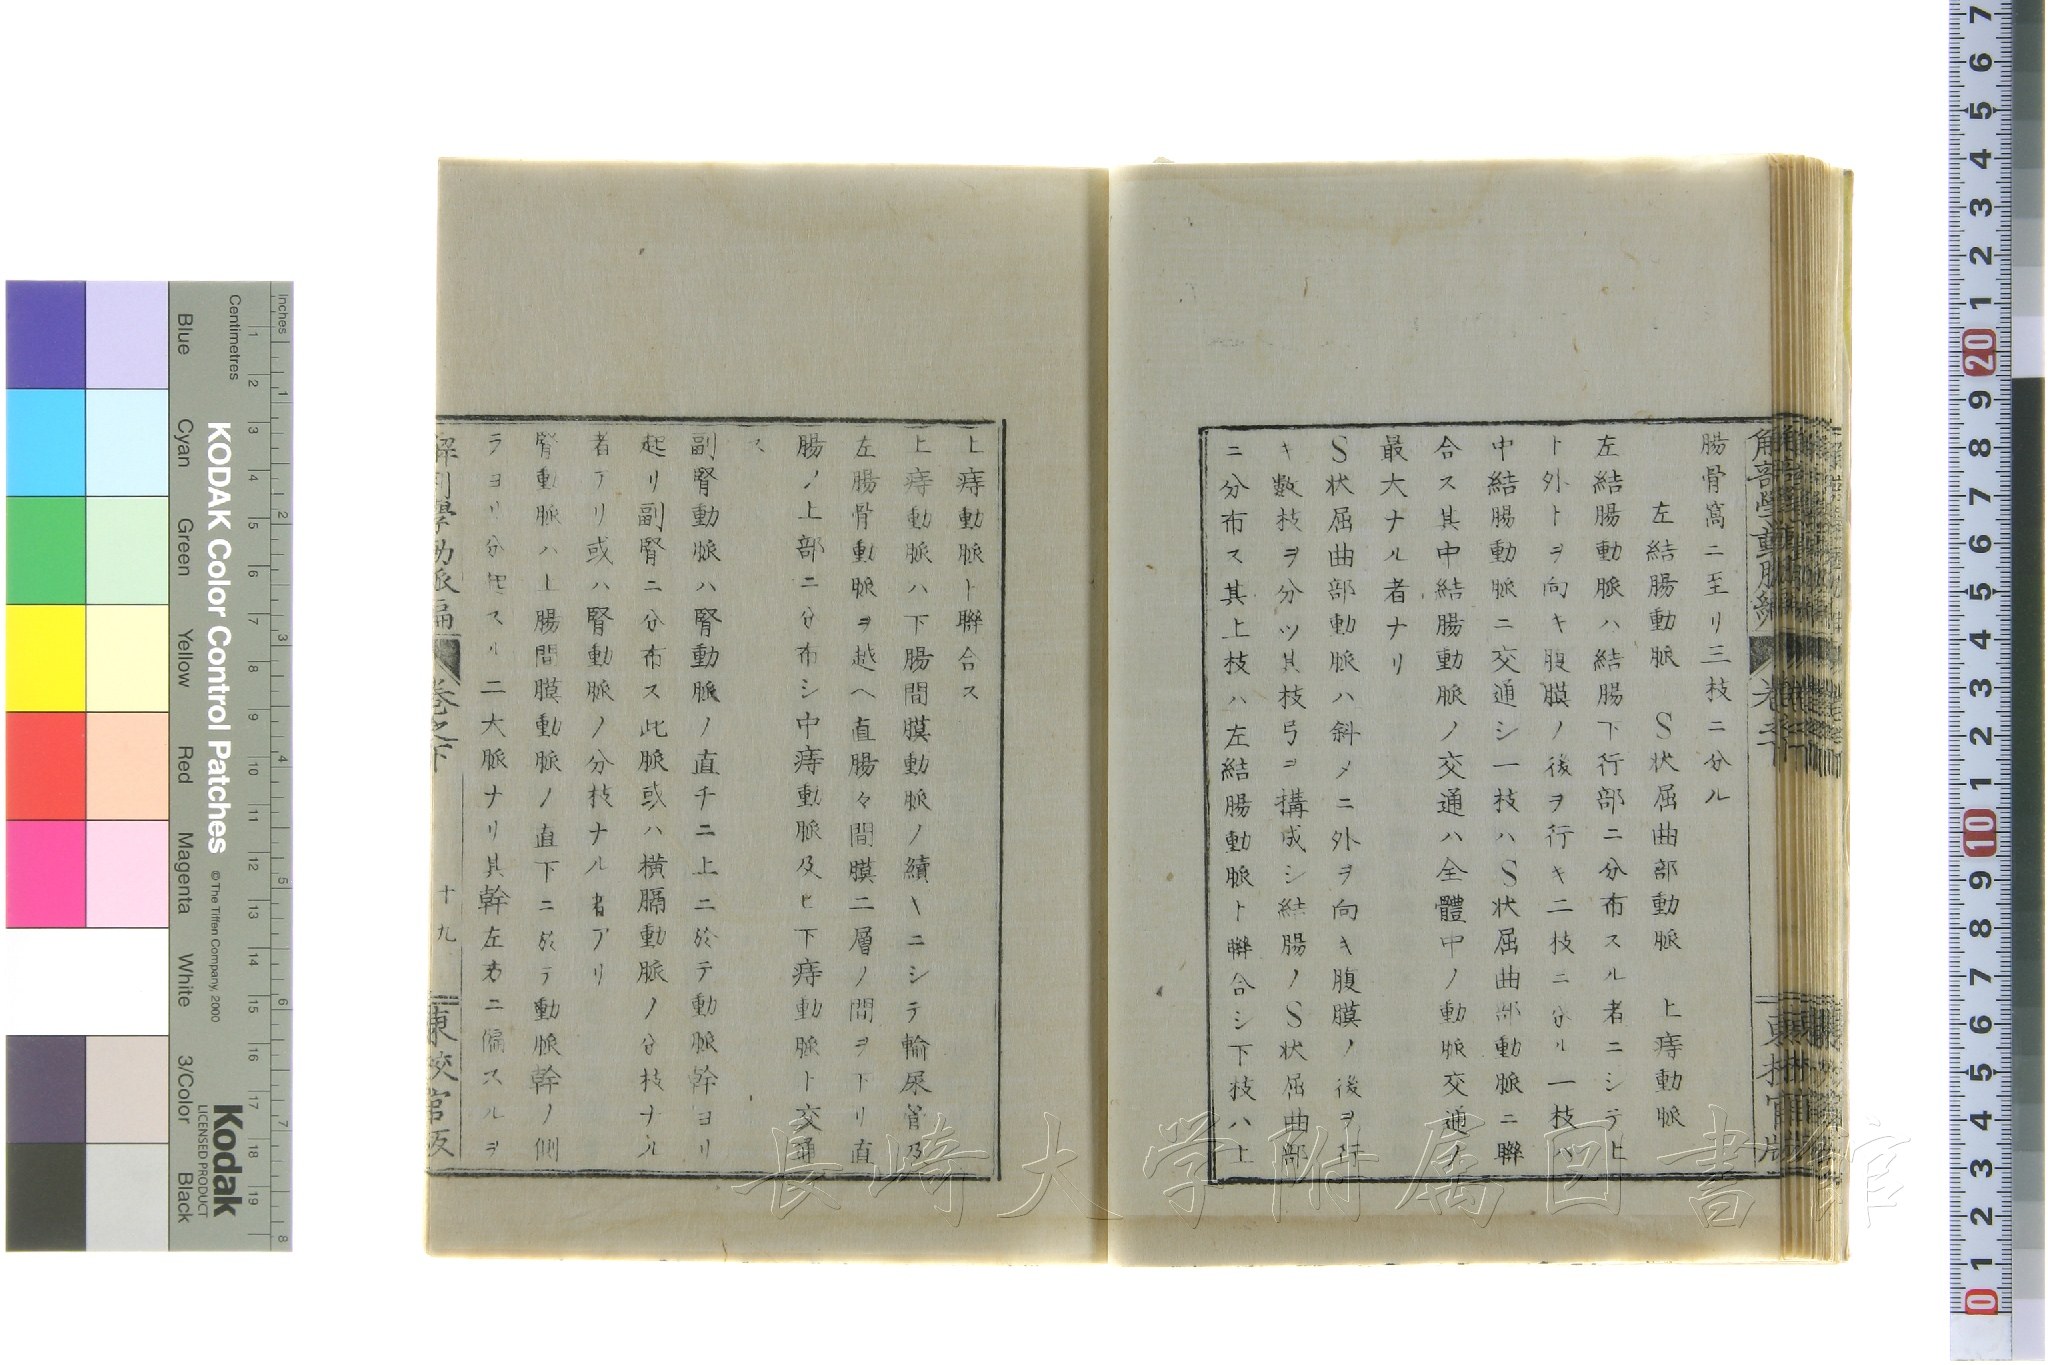 腸骨窩ニ至リ三枝ニ分ル
左結腸動脈 S状屈曲部動脈 上痔動脈
左結腸動脈ハ結腸下行部ニ分布スル者ニシテ上
ト外トヲ向キ腹膜ノ後ヲ行キ二枝ニ分ル一枝ハ
中結腸動脈ニ交通シ一枝ハS状屈曲部動脈ニ聯
合ス其中結腸動脈ノ交通ハ全體中ノ動脈交通ノ
最大ナル者ナリ
S状屈曲部動脈ハ斜メニ外ヲ向キ腹膜ノ後ヲ行
キ数枝ヲ分ツ其枝弓ヲ構成シ結腸ノS状屈曲部
ニ分布ス其上枝ハ左結腸動脈ト聯合シ下枝ハ上
上痔動脈ト聯合ス
上痔動脈ハ下腸間膜動脈ノ續キニシテ輸尿管及
左腸骨動脈ヲ越ヘ直腸々間膜二層ノ間ヲ下リ直
腸ノ上部ニ分布シ中痔動脈及ヒ下痔動脈ト交通
ス
副腎動脈ハ腎動脈ノ直チニ上ニ於テ動脈幹ヨリ
起リ副腎ニ分布ス此脈或ハ横膈動脈ノ分枝ナル
者アリ或ハ腎動脈ノ分枝ナル者アリ
腎動脈ハ上腸間膜動脈ノ直下ニ於テ動脈幹ノ側
ラヨリ分スル二大脈ナリ其幹左方ニ偏スルヲ
解剖學動脈編 巻之下 十九
長崎大学附属図書館
KODAK Color Control Patches
© The Tiffen Company, 2000
Kodak
LICENSED PRODUCT
Inches
Centimetres
Blue
Cyan
Green
Yellow
Red
Magenta
White
3/Color
Black